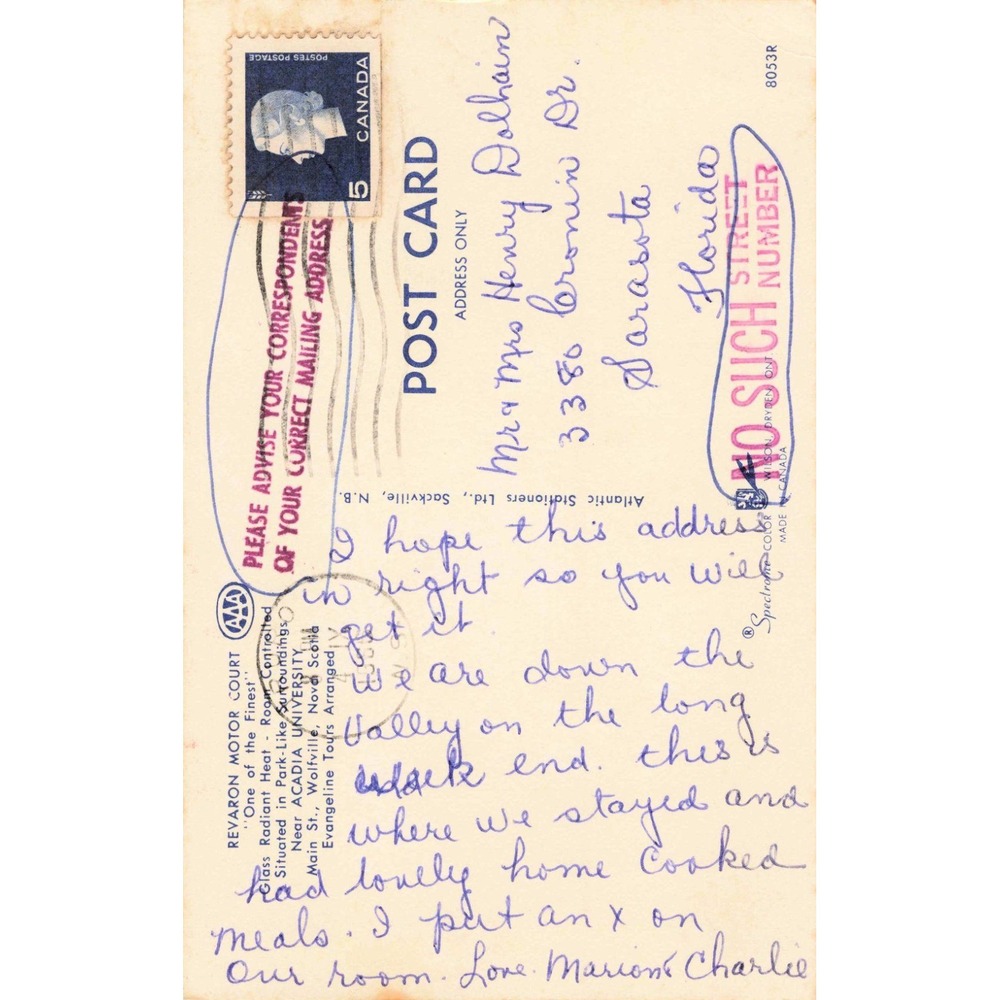 REVARON MOTOR COURT
"One of the Finest"
Glass Radiant Heat - Room Controlled
Situated in Park-Like Surroundings
Near ACADIA UNIVERSITY
Main St., Wolfville, Nova Scotia
Evangeline Tours Arranged
AAA
PLEASE ADVISE YOUR CORRESPONDENTS
OF YOUR CORRECT MAILING ADDRESS
POSTES POSTAGE
CANADA
5
POST CARD
ADDRESS ONLY
Mr & Mrs Henry Dolhain
3380 Cronin Dr.
Sarasota
Florida
NO SUCH STREET
NUMBER
8053R
Atlantic Stationers Ltd., Sackville, N.B.
® Spectrome COLOR WILSON, DRYDEN ONT
MADE IN CANADA
I hope this address
is right so you will
get it.
We are down the
Valley on the long
week end. this is
where we stayed and
had lovely home cooked
meals. I put an x on
our room. Love. Marion & Charlie